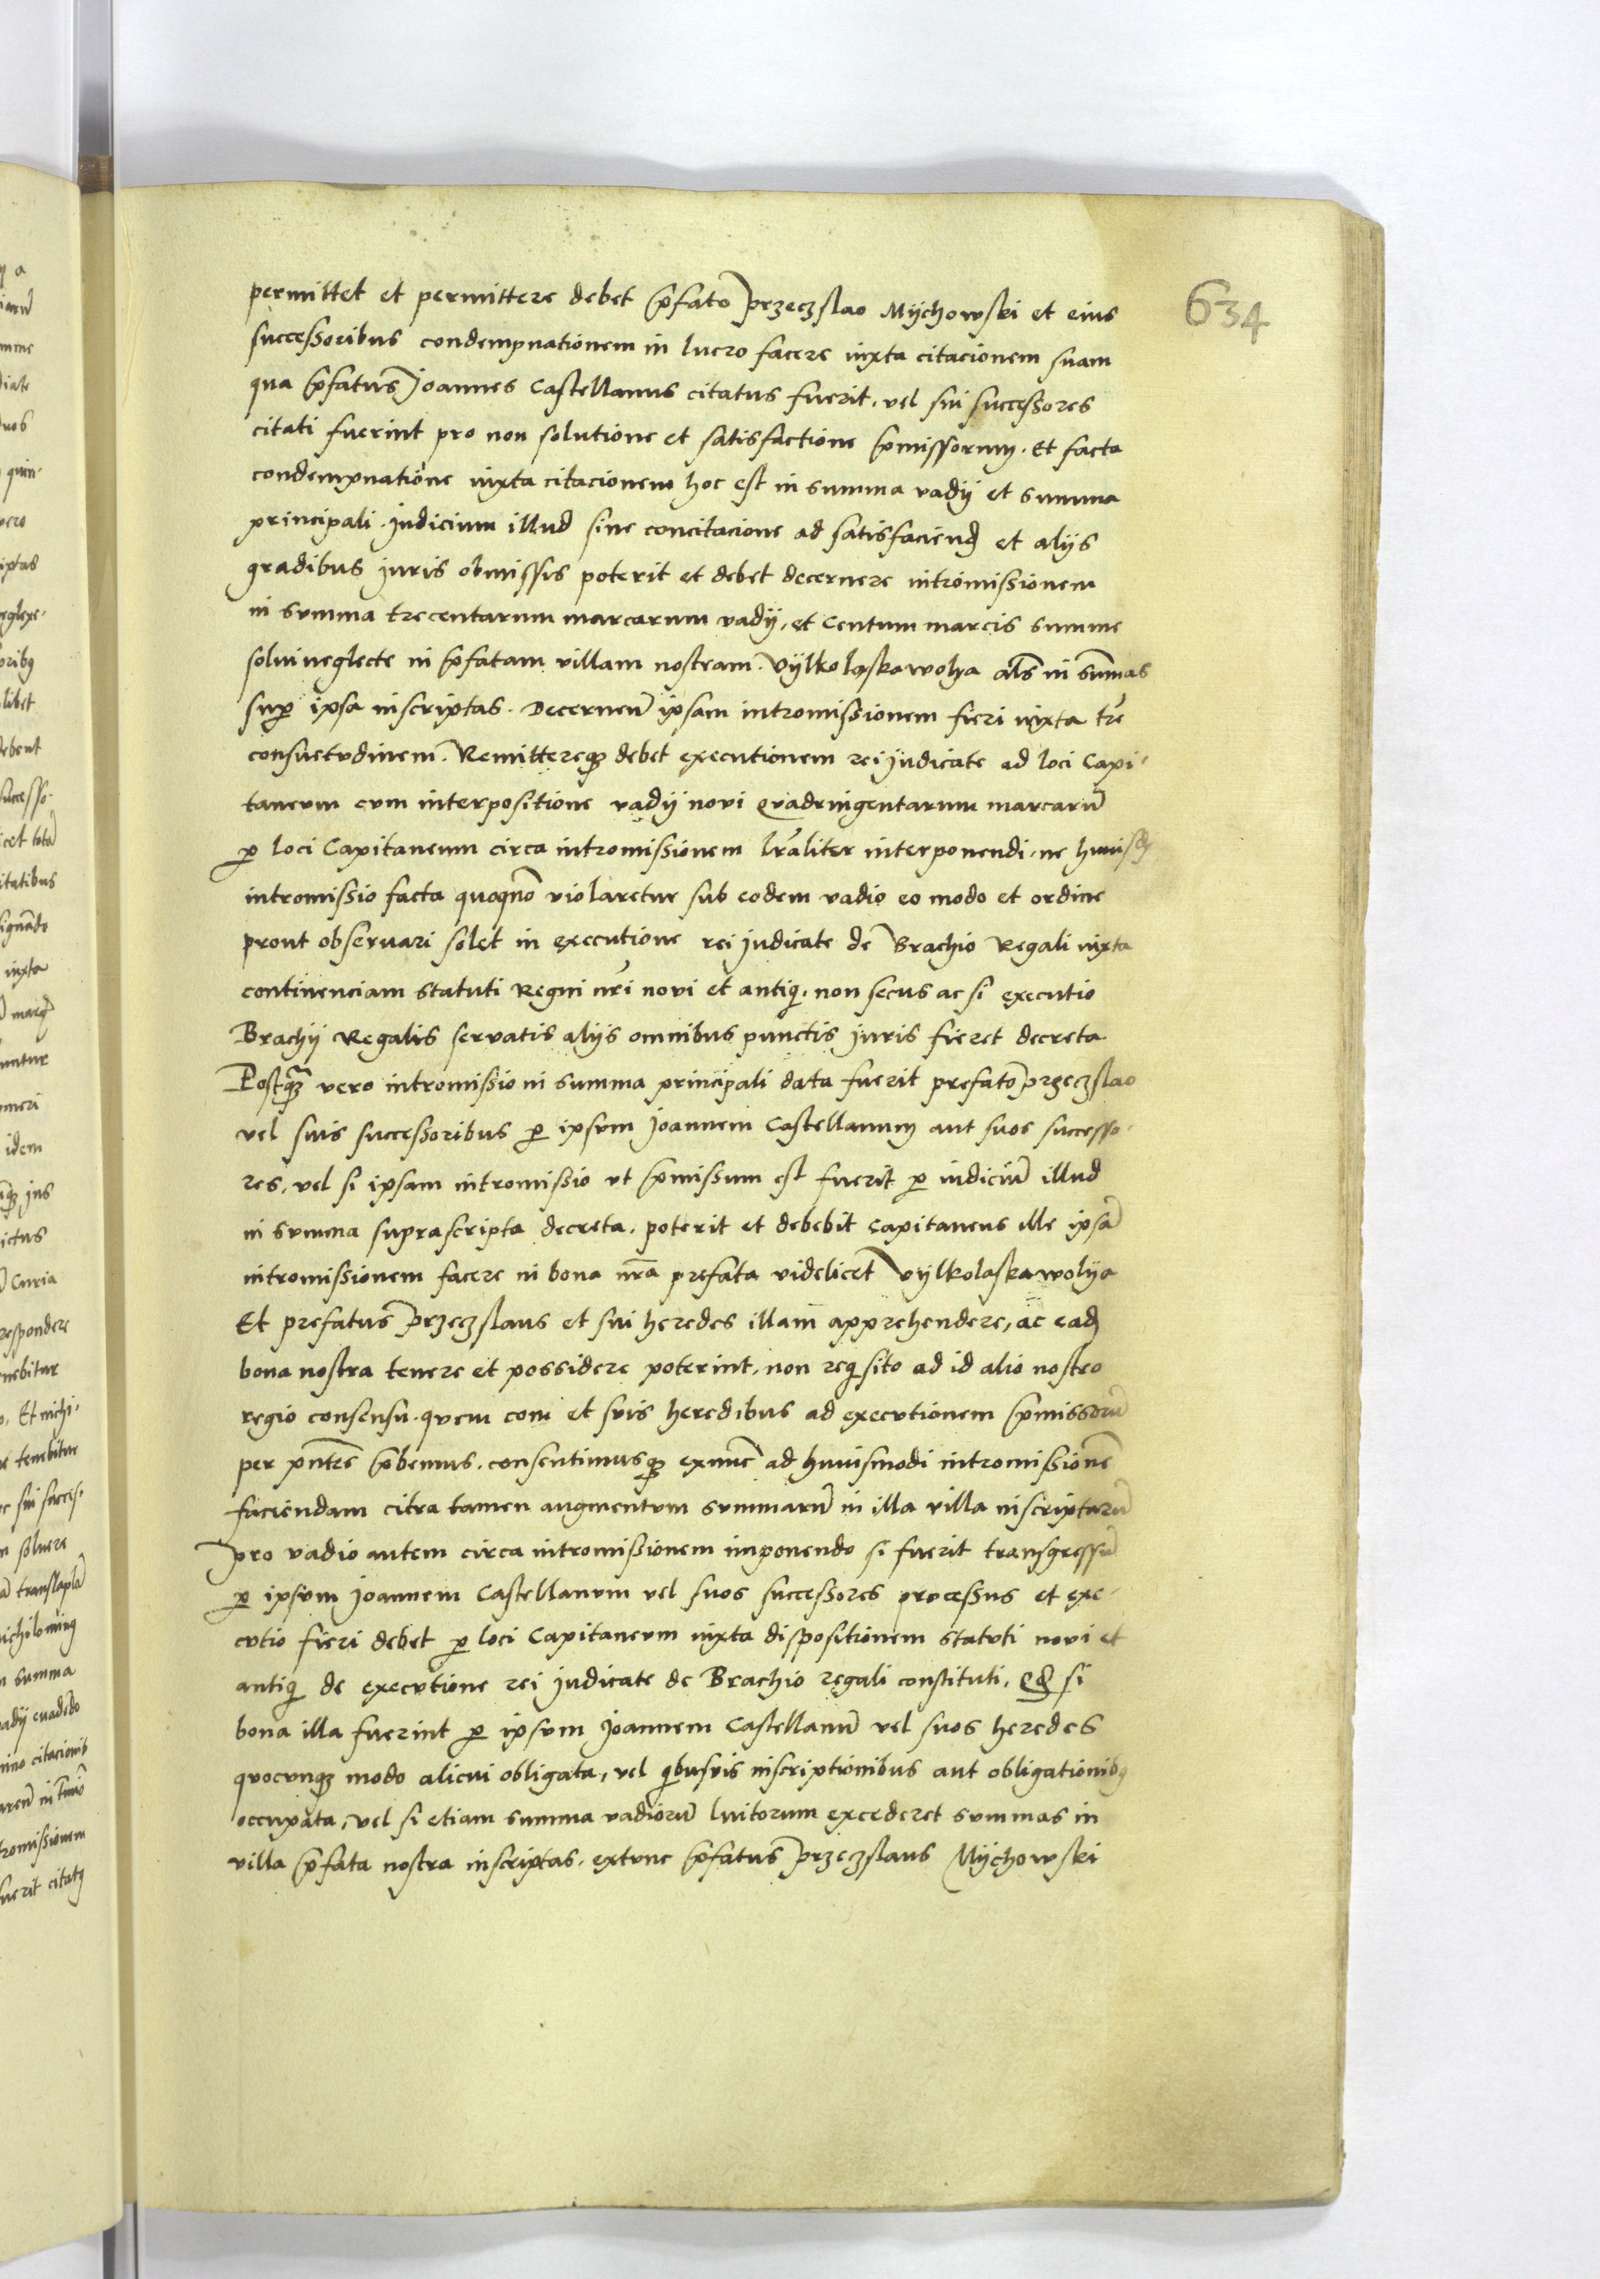 634
permittet et permittere debet p̃fato Przeczslao Mÿchowski et eius
successoribus condempnationem in lucro facere iuxta citacionem suam
qua p̃fatus Joannes Castellanus citatus fuerit, vel sui successores
citati fuerint pro non solutione et satisfactione p̃missorum. Et facta
condempnatione iuxta citacionem hoc est in summa vadÿ et summa
principali. Judicium illud sine concitacione ad satisfaciend et alÿs
gradibus juris obmissis poterit et debet decernere intromissionem
in summa trecentarum marcarum vadÿ, et Centum marcis summe
solui neglecte in p̃fatam villam nostram. Vÿlkolaskawolya als in sum̃as
sup ipsa inscriptas. Decerneñ ipsam intromissionem fieri iuxta tr̃e
consuetudinem. Remittereqz debet executionem rei Judicate ad loci Capi-
taneum cum interpositione vadÿ novi Quadringentarum marcarũ
p loci Capitaneum circa intromissionem lr̃aliter interponendi, ne huiusm̃
intromissio facta quoqñ violaretur sub eodem vadio eo modo et ordine
prout observari solet in executione rei Judicate de Brachio Regali iuxta
continenciam statuti Regni nr̃i novi et antiqi, non secus ac si executio
Brachÿ Regalis servatis alÿs omnibus punctis Juris fieret decreta
Postqz̃ vero intromissio in summa principali data fuerit prefato Przeczslao
vel suis successoribus p ipsum Joannem Castellanum aut suos successo-
res, vel si ipsam intromissio ut p̃missum est fuerit p iudiciũ illud
in summa suprascripta decreta, poterit et debebit Capitaneus ille ipsã
intromissionem facere in bona nr̃a prefata videlicet Vÿlkolaskawolÿa
Et prefatus Przeczslaus et sui heredes illam apprehendere, ac ead
bona nostra tenere et possidere poterint, non reqisito ad id alio nostro
regio consensu. quem eom et suis heredibus ad executionem p̃missorũ
per pñtes p̃bemus, consentimusqz exnũc ad huiusmodi intromissionẽ
faciendam citra tamen augmentum summarũ in illa villa inscriptarũ
pro vadio autem circa intromissionem imponendo si fuerit transgressũ
p ipsum Joannem Castellanum vel suos successores processus et exe-
cutio fieri debet p loci Capitaneum iuxta dispositionem statuti novi et
antiqi de executione rei Judicate de Brachio regali constituti, Qd si
bona illa fuerint p ipsum Joannem Castellanũ vel suos heredes
quocunqz modo alicui obligata, vel qibusvis inscriptionibus aut obligationibq
occupata, vel si etiam summa vadiorũ luitorum excederet summas in
villa p̃fata nostra inscriptas, extunc p̃fatus Przeczslaus Mÿchowski